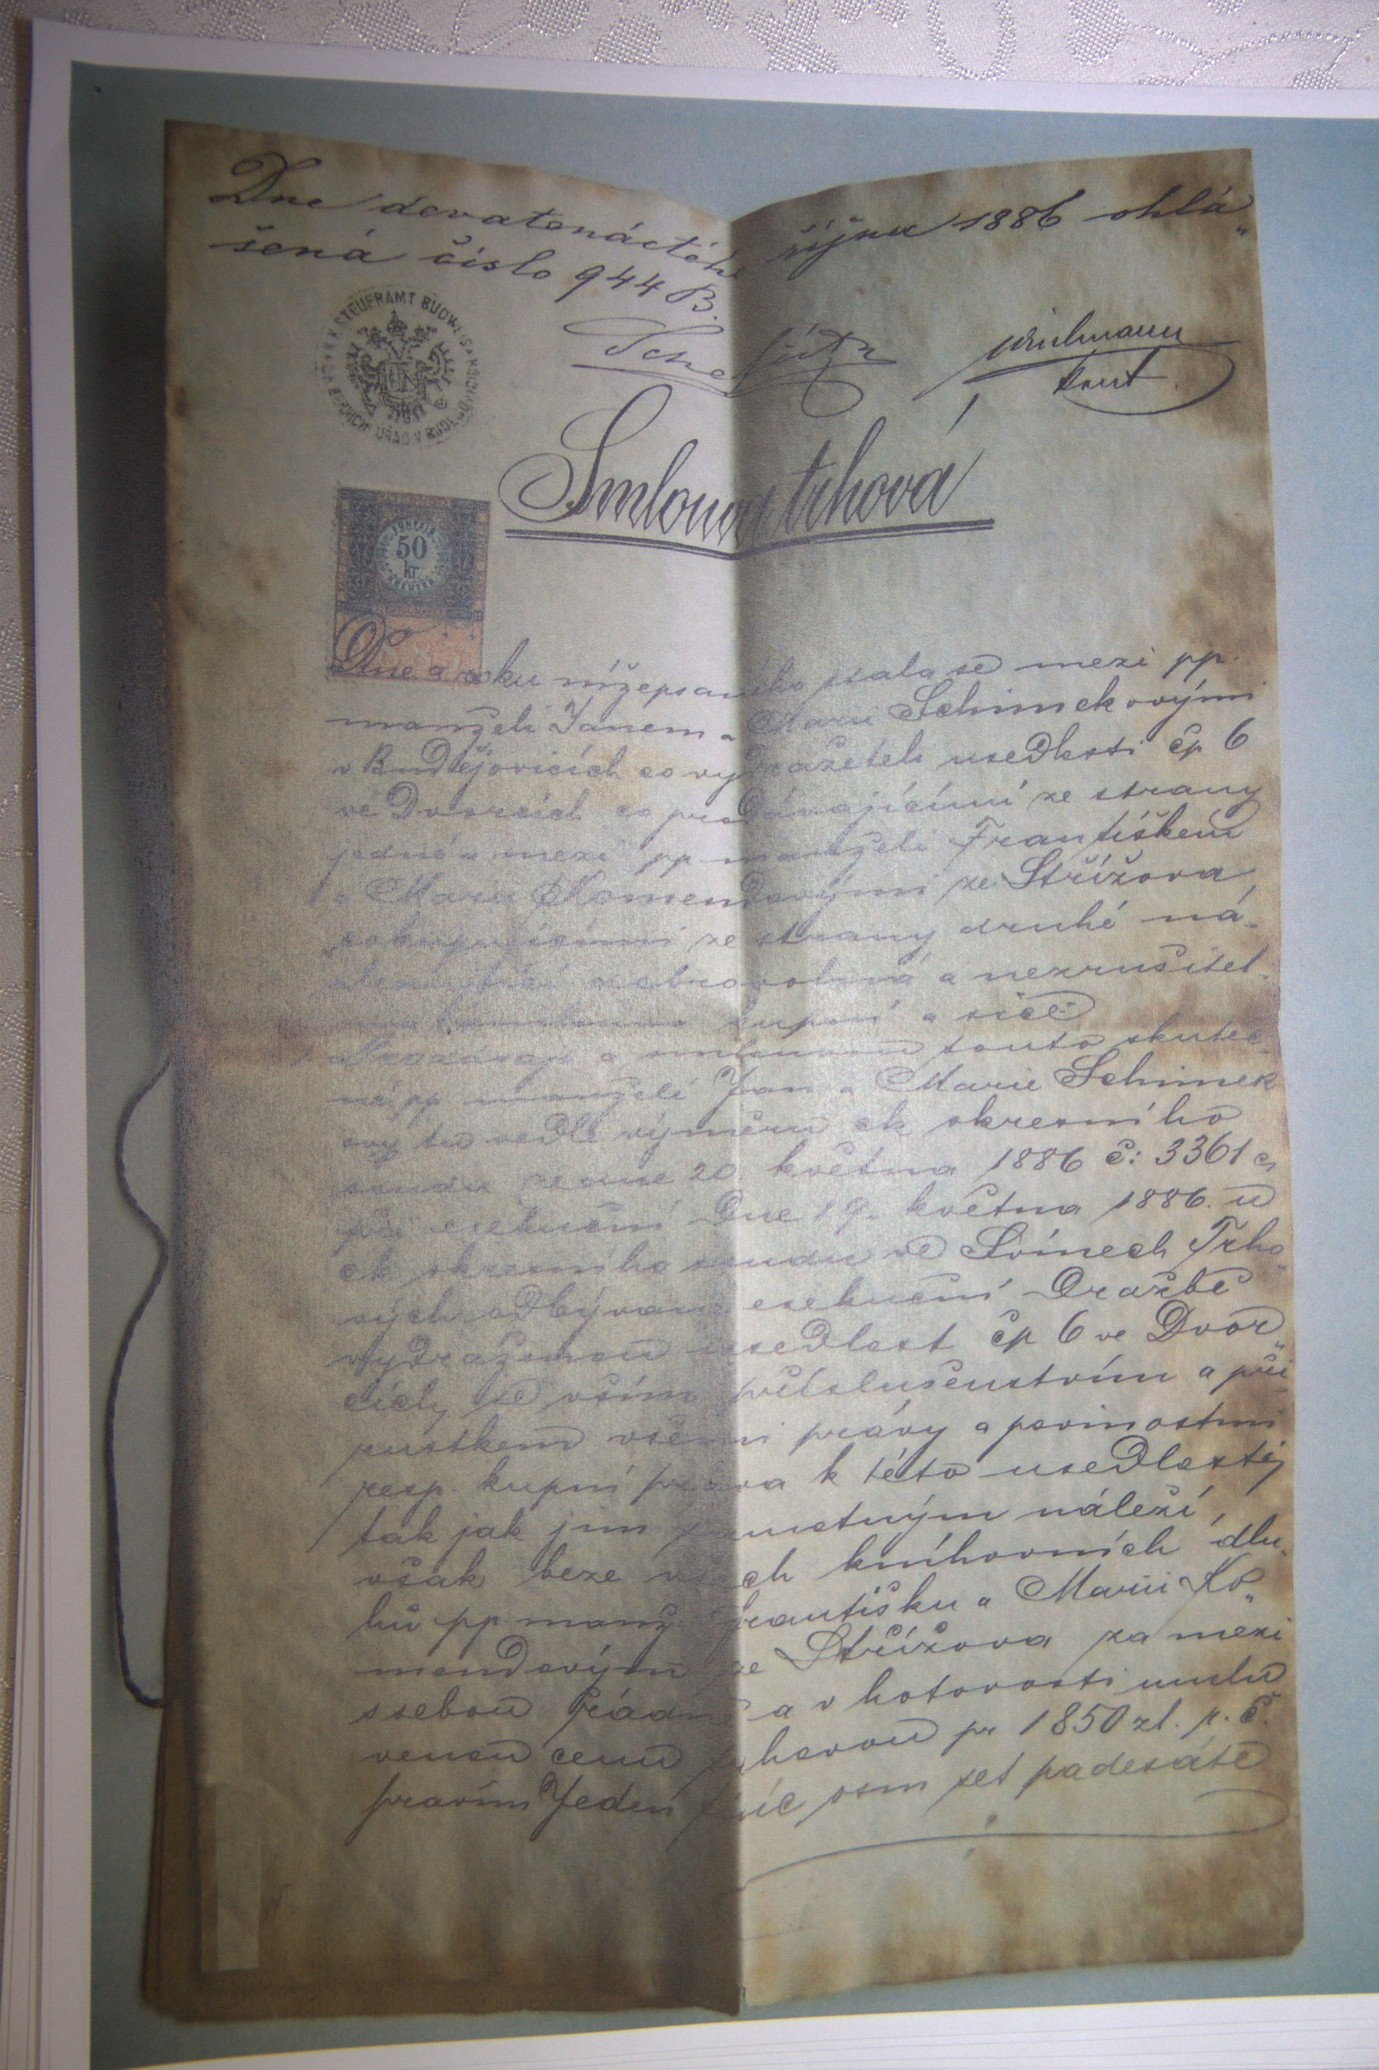 Dne devatenáctého října 1886 ohlá„
šená číslo 944 B.
K.K. STEUERAMT BUDWEIS
C.K. BERNÍ ÚŘAD V BUDĚJOVICÍCH
kont.
Smlouva trhová
50
kr
Dne a roku nížepsaného stala se mezi pp.
manželi Janem a Marii Schimekovými
v Budějovicích co vydražiteli usedlosti čp 6
ve Dvorcích co prodávajícími ze strany
jedné a mezi pp manželi Františkem
a Marii Komendovými ze Střížova
co kupujícími ze strany druhé ná„
sledující dobrovolná a nezrušitel„
ná smlouva kupní a sice
Prodávají a smlouvou touto skuteč„
ně pp manželé Jan a Marie Schimek
ovy tu vedle výměru ck okresního
soudu ze dne 20. května 1886 č: 3361 c
při exekuční Dne 19. května 1886. u
ck okresního soudu ve Svinech Trho„
vých odbývané exekuční Dražbě
vydraženou usedlost čp 6 ve Dvor„
cích, se vším příslušenstvím a pří
růstkem všemi právy a povinostmi
resp. kupní práva k této usedlosti,
tak jak jim samotným náleží,
však beze všech kníhovních dlu„
hů pp manž Františku a Marii Ko„
mendovým ze Střížova za mezi
s sebou řádně a v hotovosti umlu
venou cenu trhovou pr 1850 zl. r. č.
pravím Jeden tisíc osm set padesáte